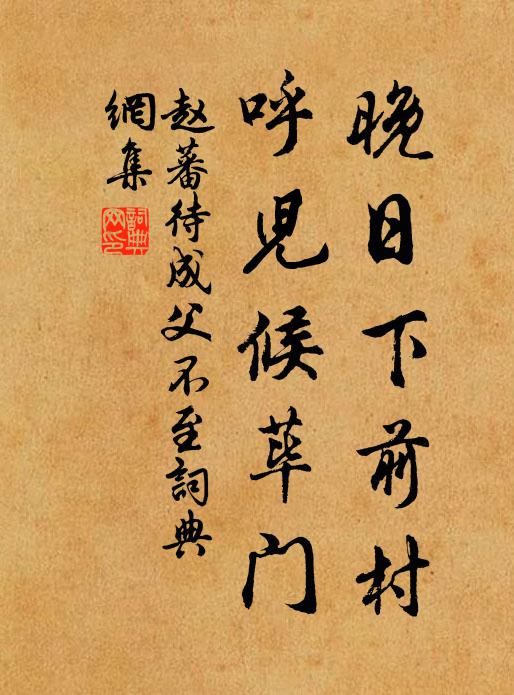 晚日下前村
呼児候荜门
赵蕃待成父不至詞典
網集
詞典
网印